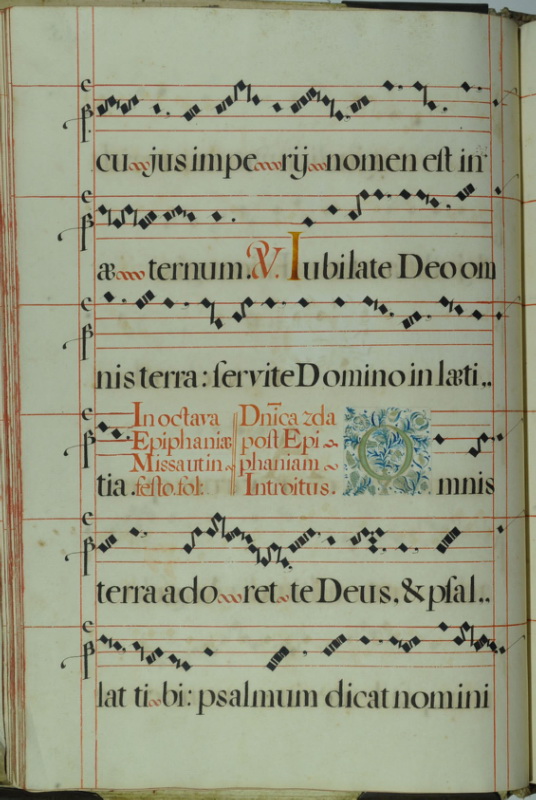 cujus imperij nomen est in
æternum. V. Iubilate Deo om
nis terra: servite Domino in læti..
In octava
Epiphaniæ
Missa ut in
festo. fol:
Dnica 2da
post Epi
phaniam
Introitus.
tia. Omnis
terra adoret te Deus, & psal..
lat tibi: psalmum dicat nomini